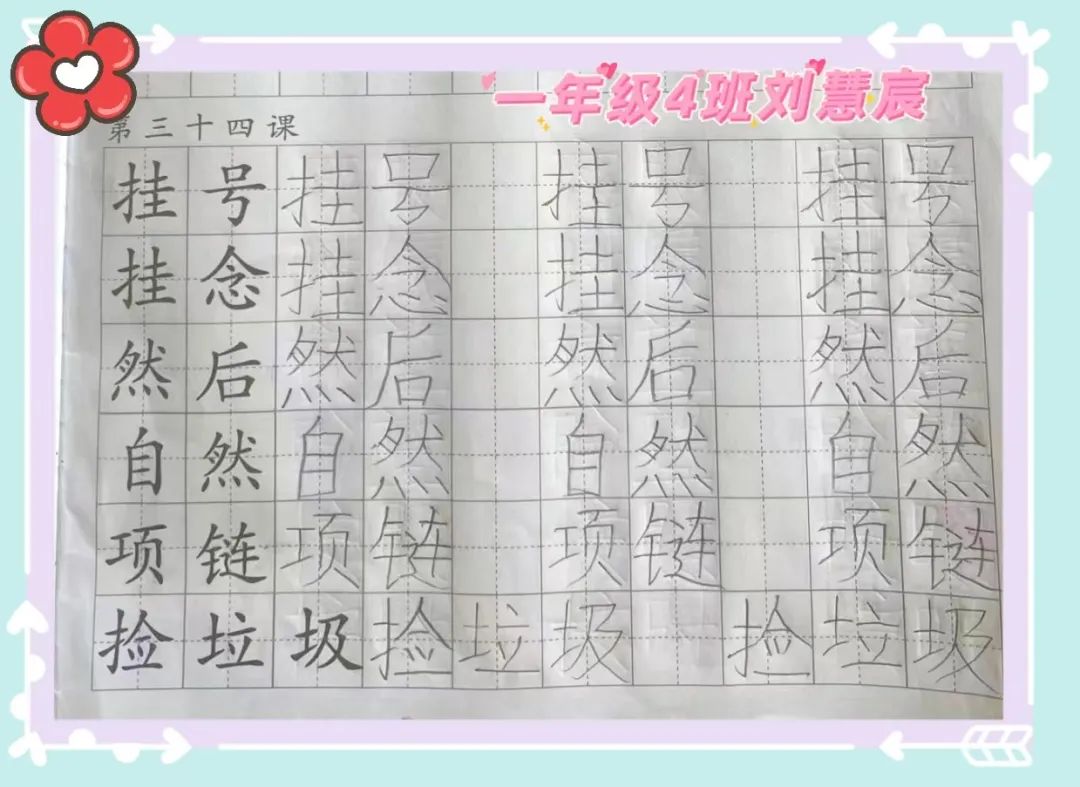 一年级4班刘慧宸
第三十四课
挂号挂号 挂号 挂号
挂念挂念 挂念 挂念
然后然后 然后 然后
自然自然 自然 自然
项链项链 项链 项链
捡垃圾捡垃圾 捡垃圾